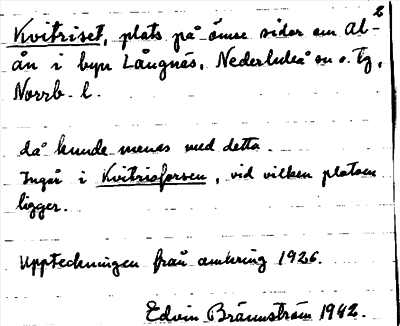 Kvitriset, plats på ömse sidor om Al-²
ån i byn Långnäs, Nederluleå sn o. tg,
Norrb. l.
då kunde menas med detta.
Ingår i Kvitrisforsen, vid vilken platsen
ligger.
Uppteckningen från omkring 1926.
Edvin Brännström 1942.